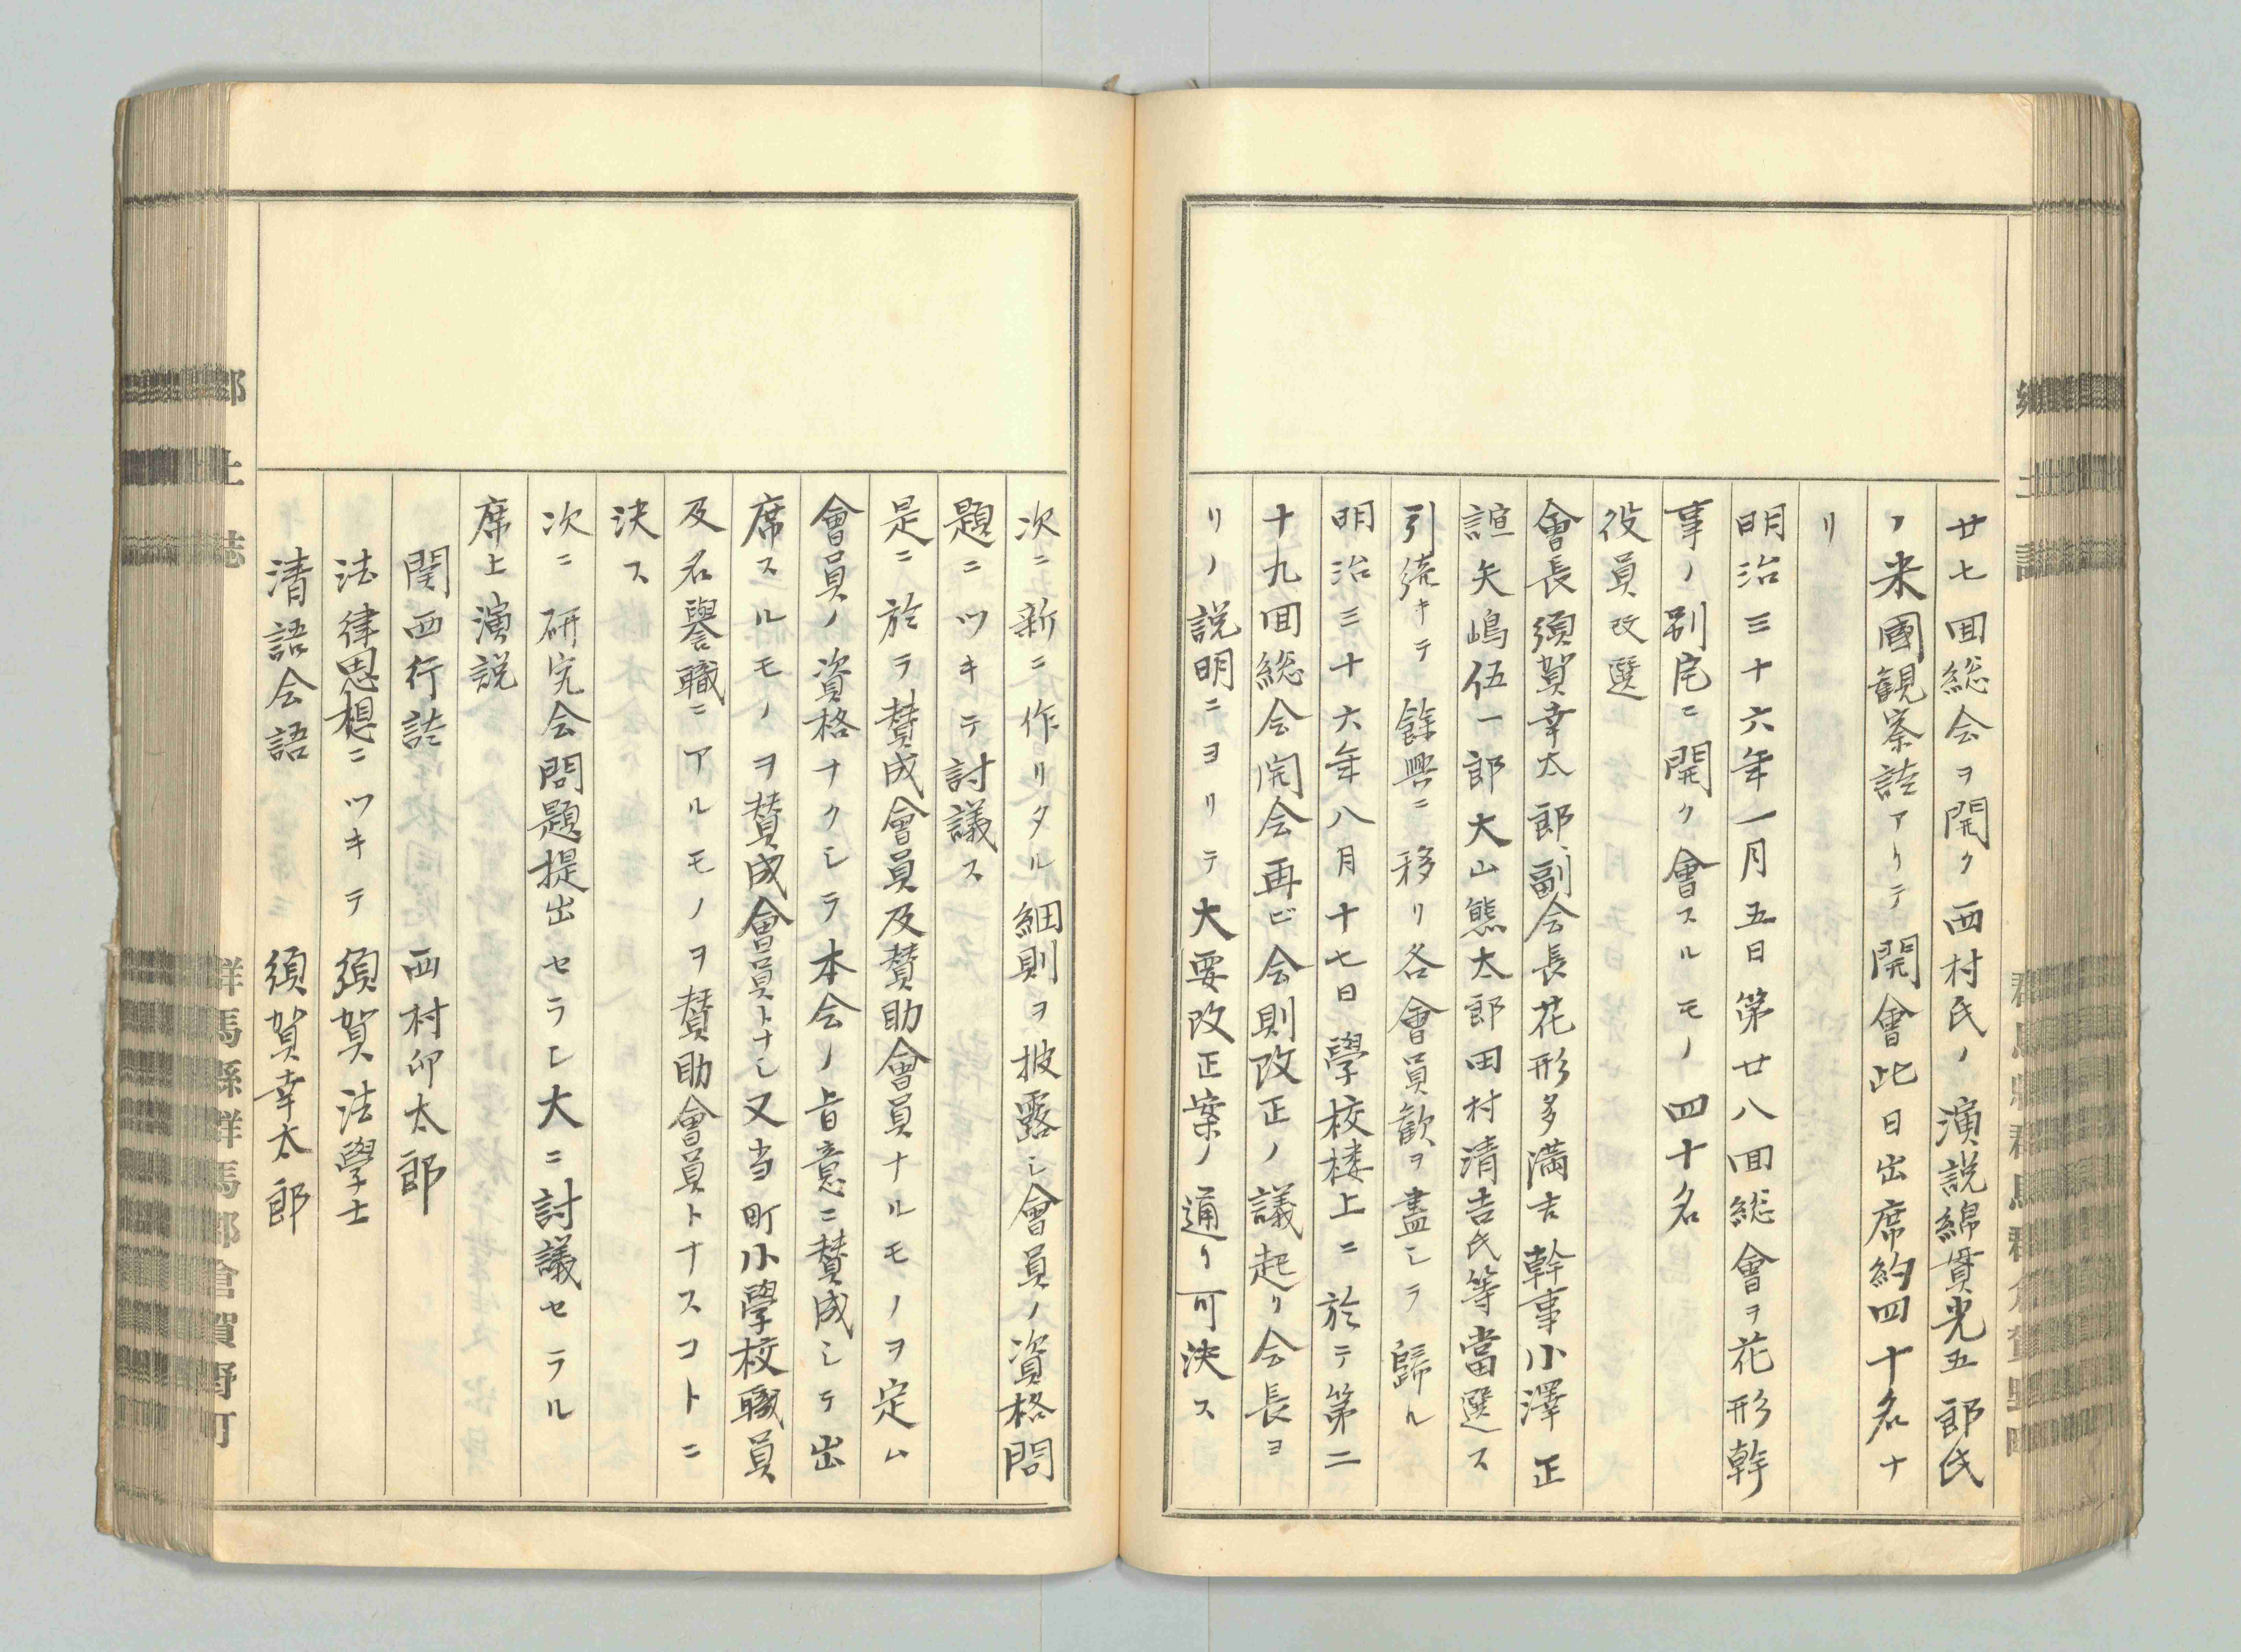 廿七回総会ヲ開ク西村氏ノ演説綿貫光五郎氏
ノ米國観察談アリテ開會此日出席約四十名ナ
リ
明治三十六年一月五日第廿八回総會ヲ花形幹
事ノ別宅ニ開ク會スルモノ四十名
役員改選
會長須賀幸太郎、副会長花形多満吉幹事小澤正
諠矢嶋伍一郎大山熊太郎田村清吉氏等當選ス
引続キテ餘興ニ移リ各會員歓ヲ盡シテ歸ル
明治三十六年八月十七日學校楼上ニ於テ第二
十九回総会開会再ビ会則改正ノ議起リ会長ヨ
リノ説明ニヨリテ大要改正案ノ通リ可決ス
次ニ新ニ作リタル細則ヲ披露シ會員ノ資格問
題ニツキテ討議ス
是ニ於テ賛成會員及賛助會員ナルモノヲ定ム
會員ノ資格ナクシテ本会ノ旨意ニ賛成シテ出
席スルモノヲ賛成會員トナシ又当町小學校職員
及名譽職ニアルモノヲ賛助會員トナスコトニ
決ス
次ニ研究会問題提出セラレ大ニ討議セラル
席上演説
関西行談 西村卯太郎
法律思想ニツキテ 須賀法學士
清語会語 須賀幸太郎
郷土誌
群馬縣群馬郡倉賀野町